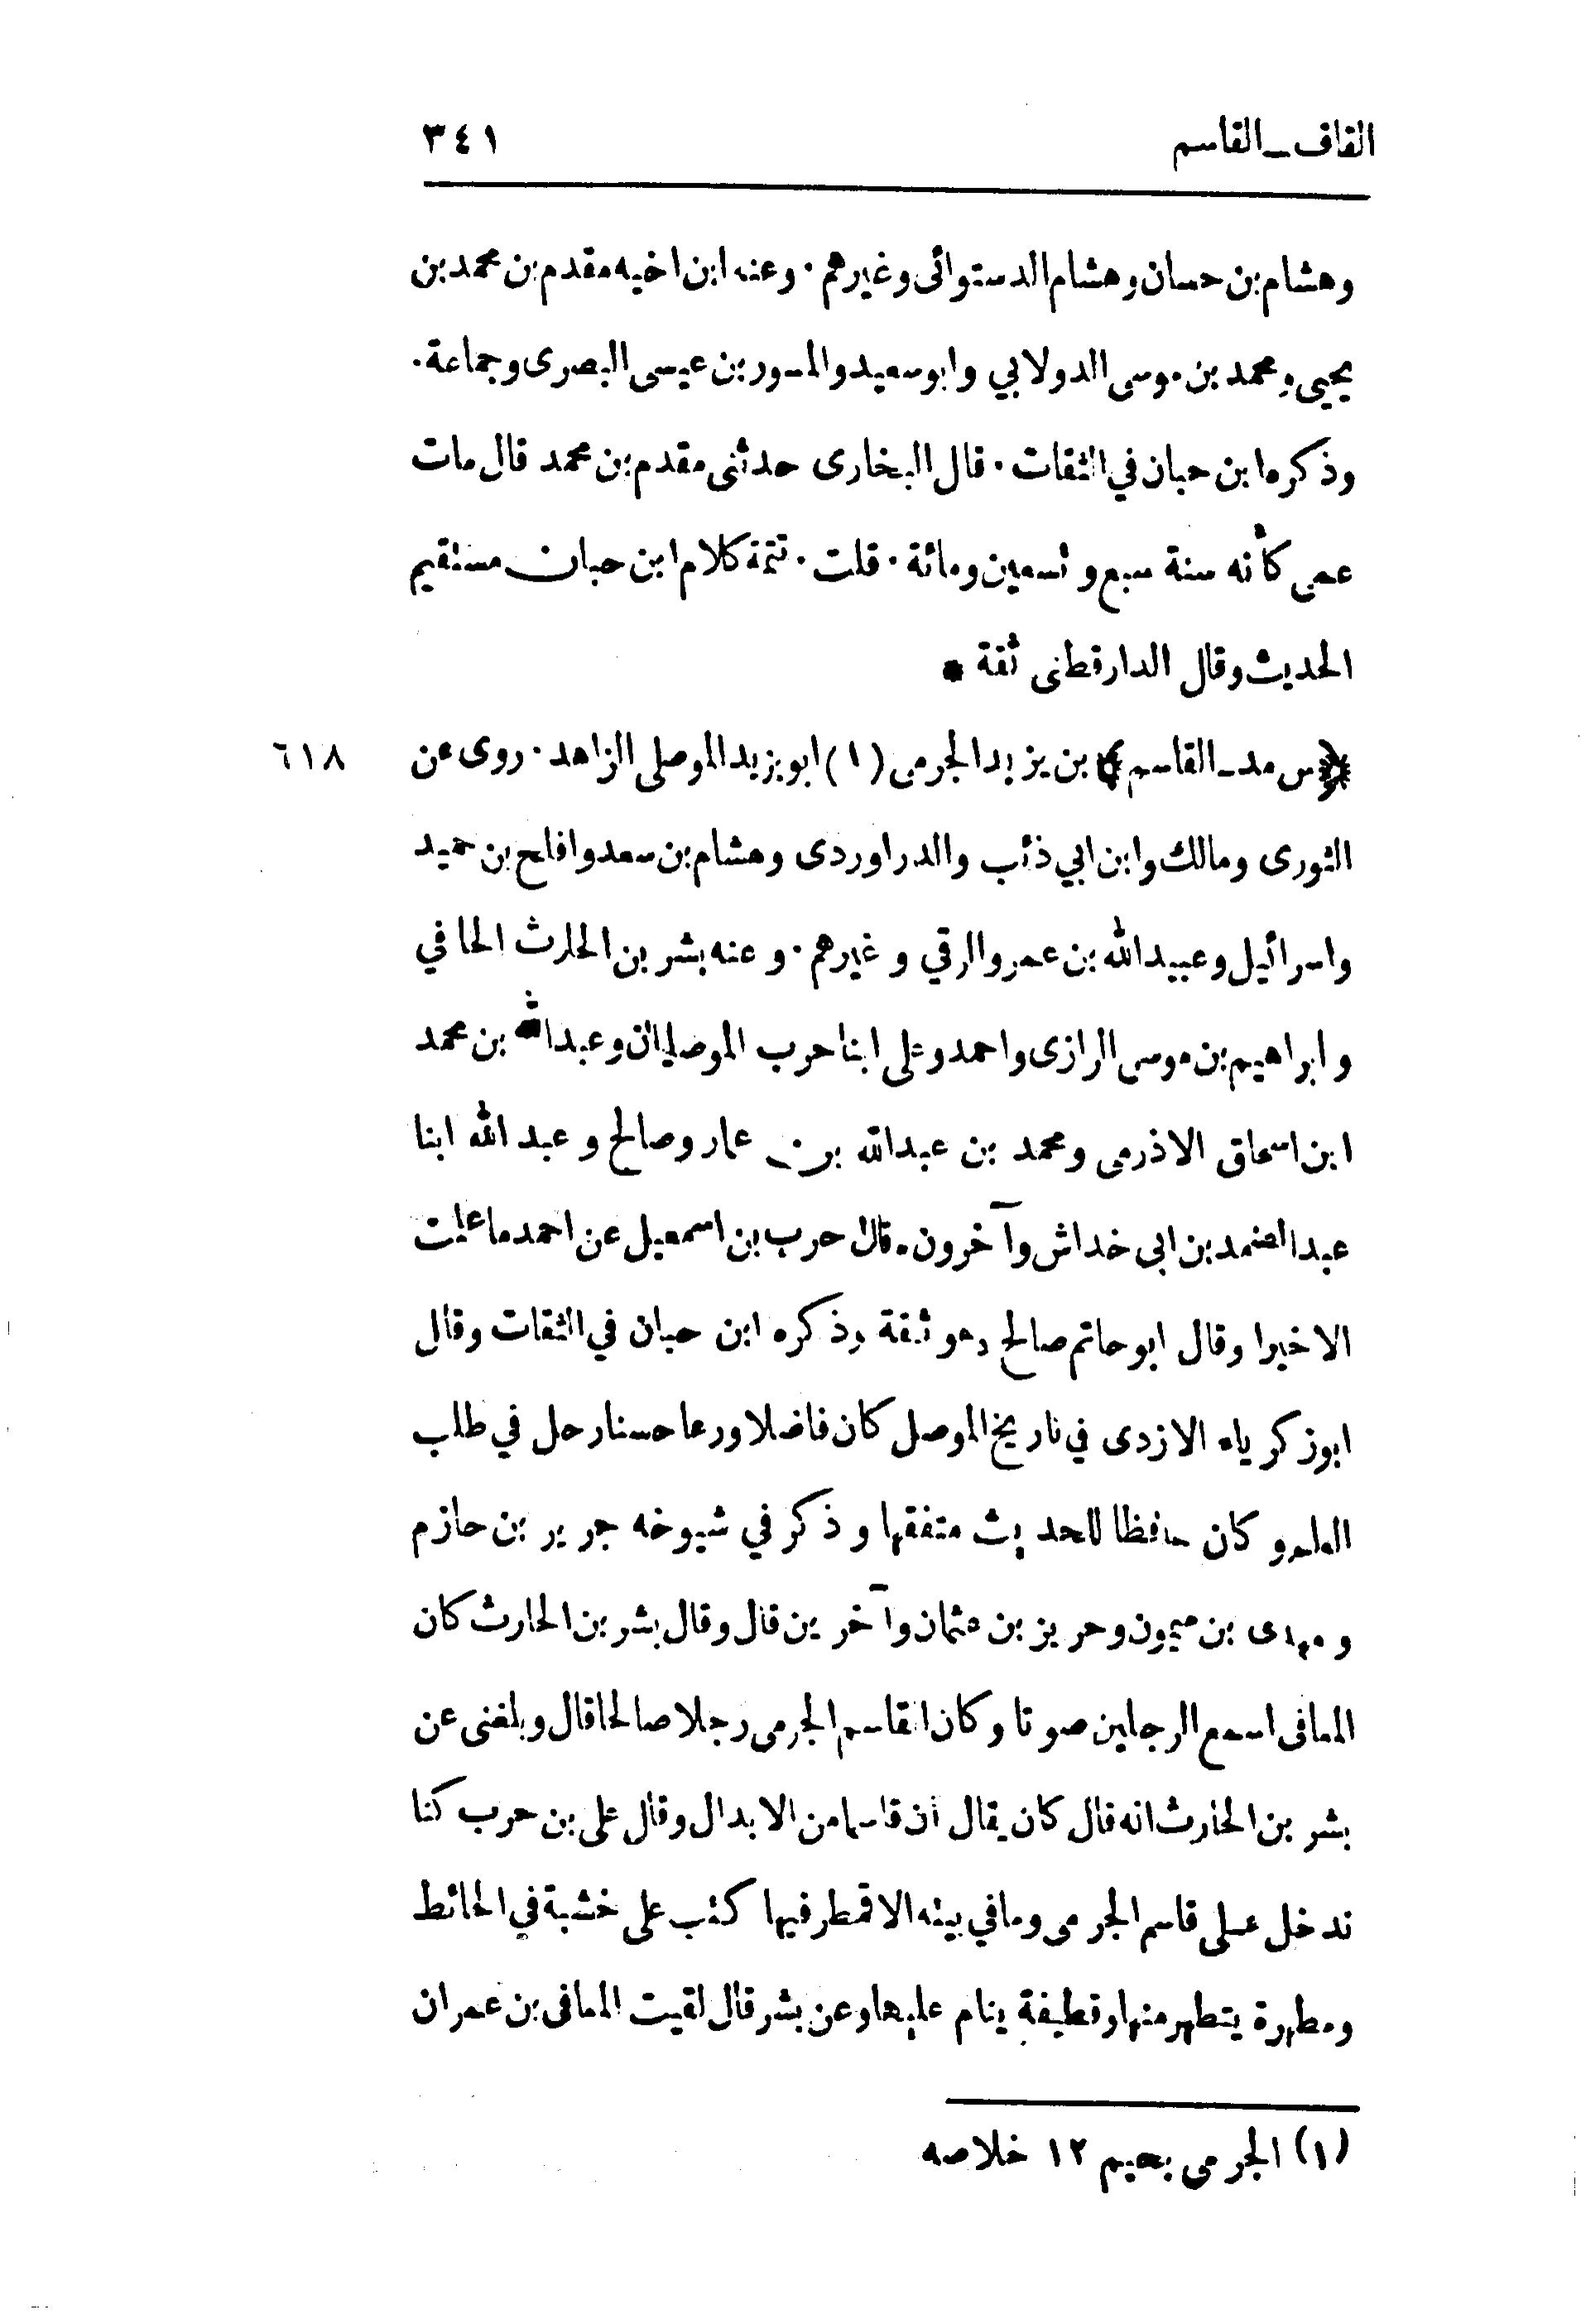 القاف ـ القاسم ٣٤١
وهشام بن حسان وهشام الدستوائى وغيرهم ٠ وعنه ابن اخيه مقدم بن محمد بن
يحيى ومحمد بن موسى الدولابي وابو سعيد والمسور بن عيسى البصرى وجماعة ٠
وذكره ابن حبان في الثقات ٠ قال البخارى حدثنى مقدم بن محمد قال مات
عمى كأنه سنة سبع وتسعين ومائة ٠ قلت ٠ تتمة كلام ابن حبان مستقيم
الحديث وقال الدارقطنى ثقة *
﴿ س مد ـ القاسم ﴾ بن يزيد الجرمى (١) ابو يزيد الموصلى الزاهد ٠ روى عن ٦١٨
الثورى ومالك وابن ابي ذئب والدراوردى وهشام بن سعد وافلح بن حميد
واسرائيل وعبيد الله بن عمرو الرقي و غيرهم ٠ و عنه بشر بن الحارث الحافي
و ابراهيم بن موسى الرازى واحمد وعلى ابنا حرب الموصليان وعبد الله بن محمد
ابن اسحاق الاذرمى ومحمد بن عبد الله بن عمار وصالح و عبد الله ابنا
عبد الصمد بن ابى خداش وآخرون ٠ قال حرب بن اسمعيل عن احمد ما علمت
الا خيرا وقال ابو حاتم صالح وهو ثقة وذكره ابن حبان في الثقات وقال
ابو زكرياء الازدى في تاريخ الموصل كان فاضلا ورعا حسنا رحل في طلب
العلم و كان حافظا للحديث متفقها و ذكر في شيوخه جرير بن حازم
و مهدى بن ميمون وحريز بن عثمان وآخرين قال وقال بشر بن الحارث كان
المعافى اسمع الرجلين صوتا وكان القاسم الجرمى رجلا صالحا قال وبلغنى عن
بشر بن الحارث انه قال كان يقال ان قاسما من الابدال وقال على بن حرب كنا
ندخل على قاسم الجرمى وما في بيته الا قمطر فيها كتب على خشبة في الحائط
ومطهرة يتطهر منها وقطيفة ينام عليها وعن بشر قال لقيت المعافى بن عمران
(١) الجرمى بجيم ١٢ خلاصه